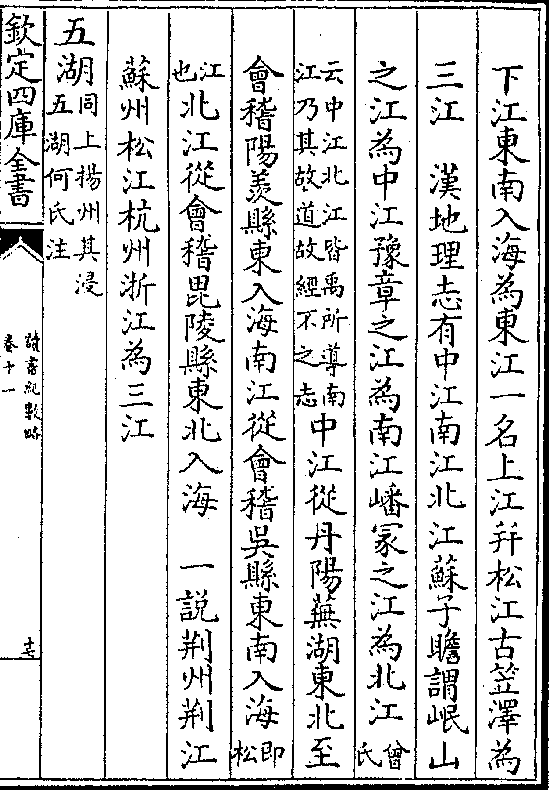 下江東南入海為東江一名上江幷松江古笠澤為
三江　漢地理志有中江南江北江蘇子瞻謂岷山
之江為中江豫章之江為南江嶓冢之江為北江曾氏
云中江北江皆禹所導南
江乃其故道故經不之志
中江從丹陽蕪湖東北至
會稽陽羨縣東入海南江從會稽吳縣東南入海即松
江也
北江從會稽毘陵縣東北入海　一說荆州荆江
蘇州松江杭州浙江為三江
五湖
同上揚州其浸
五湖何氏注
欽定四庫全書
讀書紀數略
卷十一
十七